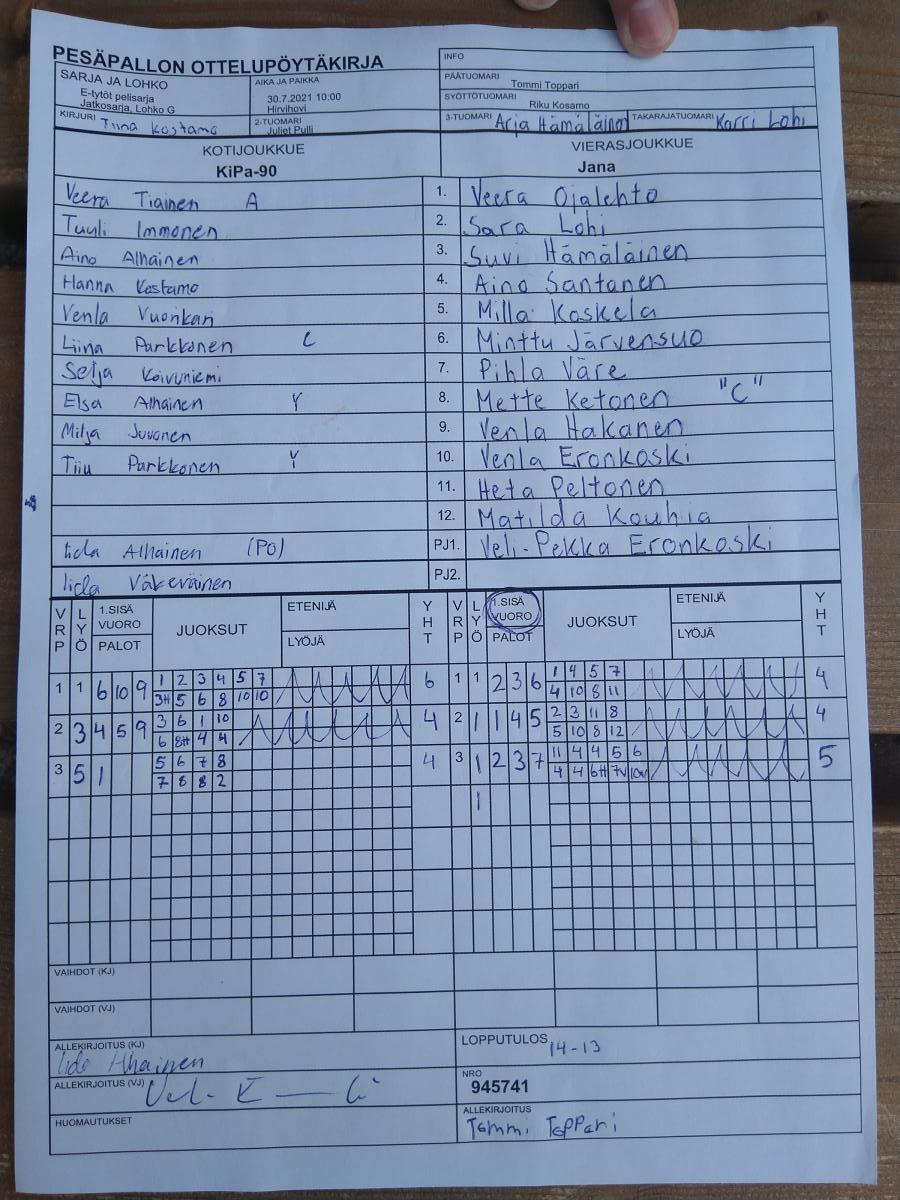 PESÄPALLON OTTELUPÖYTÄKIRJA
INFO
SARJA JA LOHKO
E-tytöt pelisarja
Jatkosarja, Lohko G
AIKA JA PAIKKA
30.7.2021 10:00
Hirvihovi
PÄÄTUOMARI Tommi Toppari
SYÖTTÖTUOMARI Riku Kosamo
KIRJURI Tiina Kostamo
2-TUOMARI
Juliet Pulli
3-TUOMARI Arja Hämäläinen TAKARAJATUOMARI Karri Lohi
KOTIJOUKKUE VIERASJOUKKUE
KiPa-90 Jana
Veera Tiainen A 1. Veera Ojalehto
Tuuli Immonen 2. Sara Lohi
Aino Alhainen 3. Suvi Hämäläinen
Hanna Kostamo 4. Aino Santanen
Venla Vuonkari 5. Milla Koskela
Liina Parkkonen C 6. Minttu Järvensuo
Selja Koivuniemi 7. Pihla Väre
Elsa Alhainen Y 8. Mette Ketonen "C"
Milja Juvonen 9. Venla Hakanen
Tiiu Parkkonen Y 10. Venla Eronkoski
11. Heta Peltonen
12. Matilda Kouhia
Iida Alhainen (PO) PJ1. Veli-Pekka Eronkoski
Iida Väkeväinen PJ2.
VRP LYÖ 1.SISÄ VUORO PALOT JUOKSUT ETENIJÄ LYÖJÄ YHT VRP LYÖ 1.SISÄ VUORO PALOT JUOKSUT ETENIJÄ LYÖJÄ YHT
1 1 6 10 9 1 2 3 4 5 7 6 1 1 2 3 6 1 4 5 7 4
3H 5 6 8 10 10 4 10 8 11
2 3 4 5 9 3 6 1 10 4 2 1 1 4 5 2 3 11 8 4
6 8H 4 4 5 10 8 12
3 5 1 5 6 7 8 4 3 1 2 3 7 11 4 4 5 6 5
7 8 8 2 4 4 6H 7V 10V
1
VAIHDOT (KJ)
VAIHDOT (VJ)
ALLEKIRJOITUS (KJ)
Iida Alhainen
LOPPUTULOS 14-13
ALLEKIRJOITUS (VJ)
NRO
945741
HUOMAUTUKSET
ALLEKIRJOITUS
Tommi Toppari